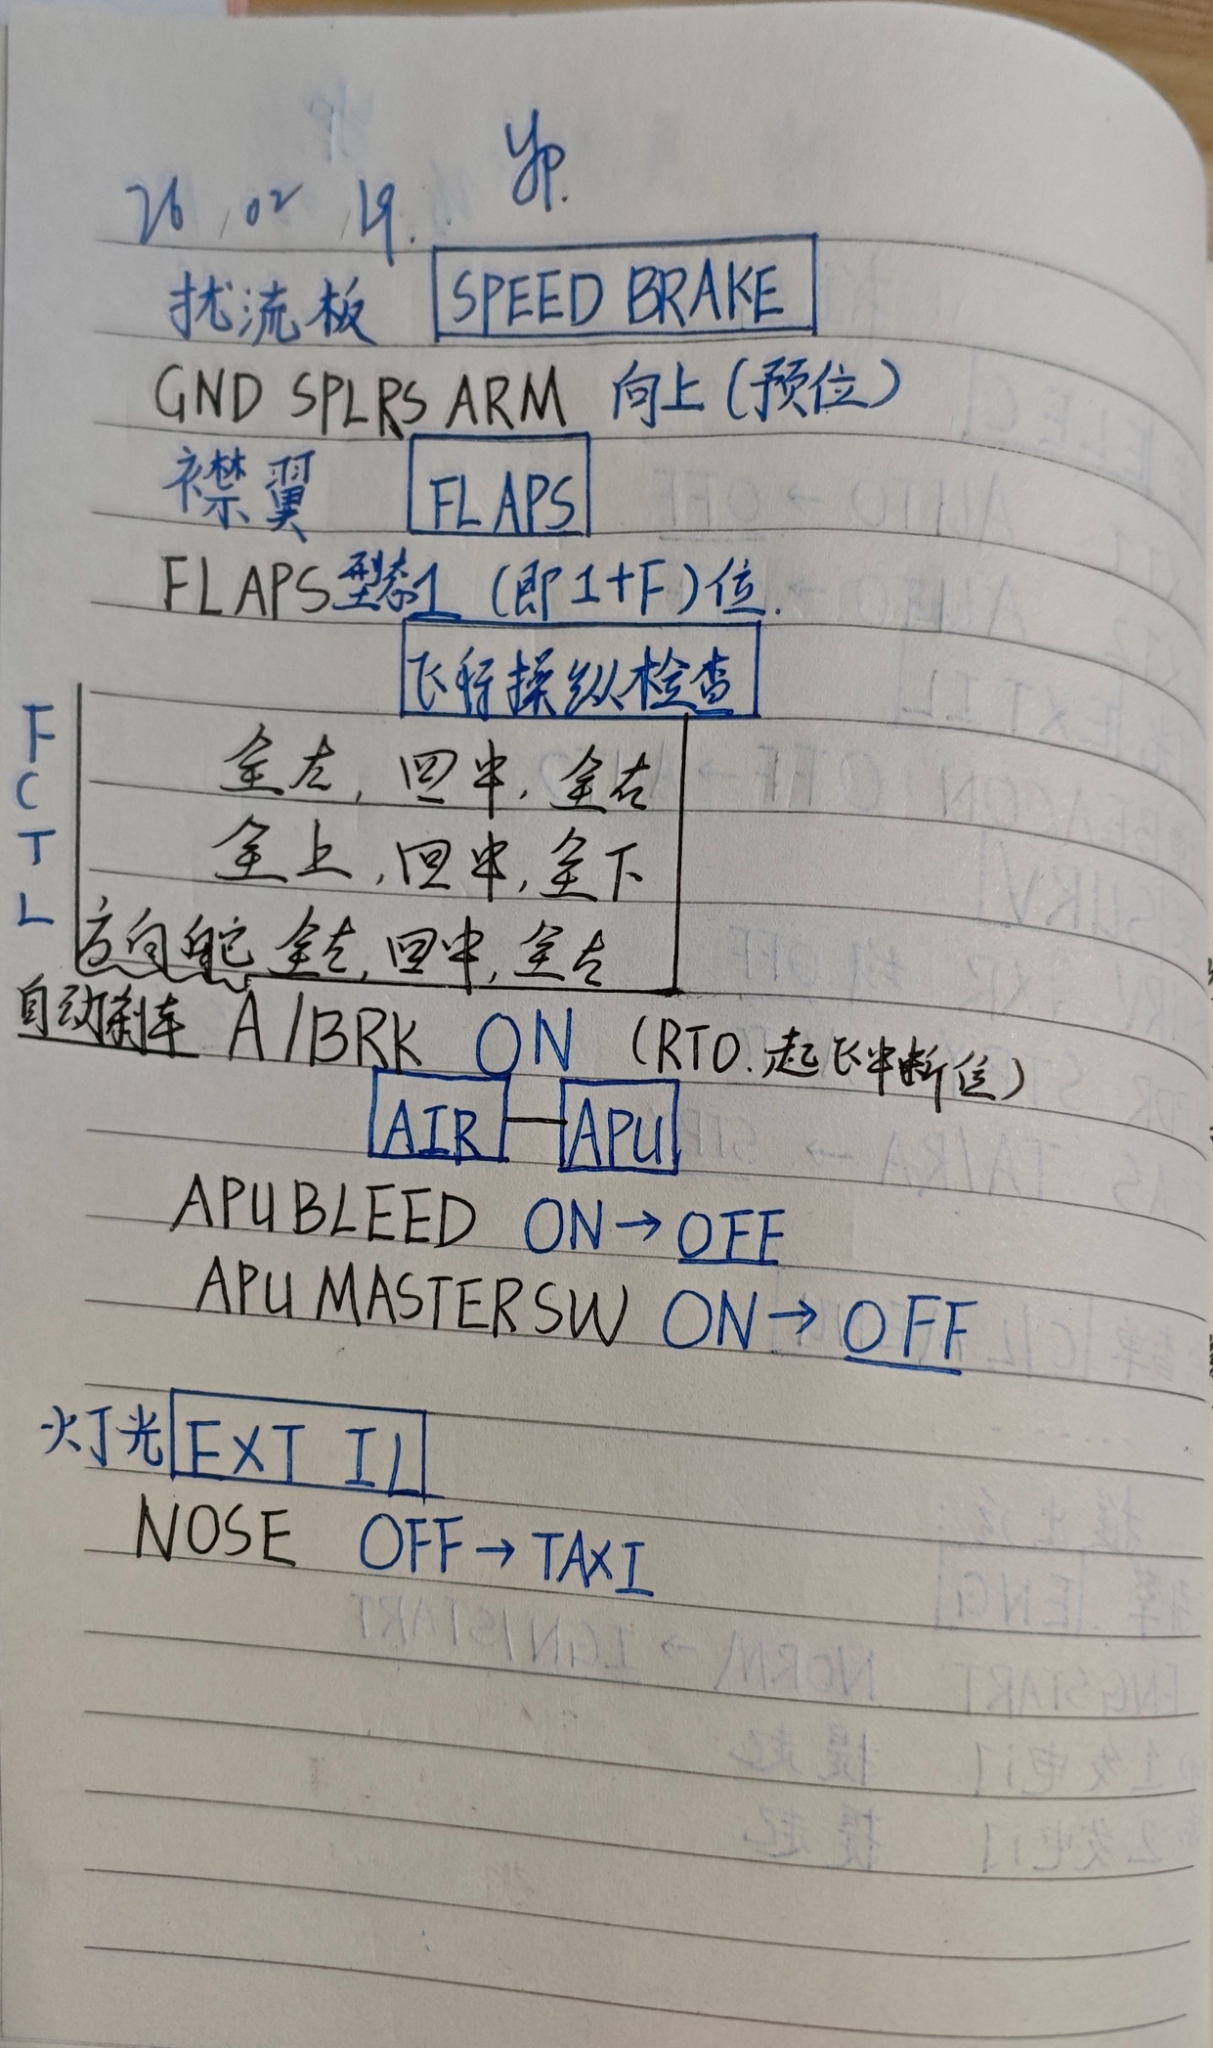 yp.
26.02.19.
扰流板 SPEED BRAKE
GND SPLRS ARM 向上(预位)
襟翼 FLAPS
FLAPS型态1 (即1+F)位.
飞行操纵检查
F
C
T
L
全左,回中,全右
全上,回中,全下
方向舵 全左,回中,全左
自动刹车 A/BRK ON (RTO.起飞中断位)
AIR—APU
APU BLEED ON→OFF
APU MASTER SW ON→OFF
灯光 EXT IL
NOSE OFF→TAXI